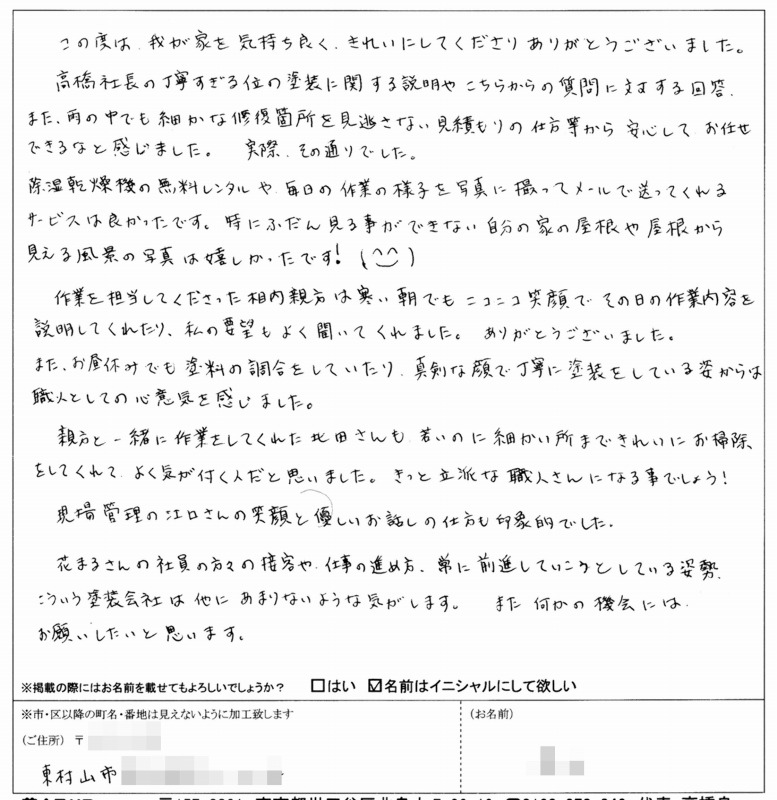 この度は、我が家を気持ち良く、きれいにしてくださりありがとうございました。
高橋社長の丁寧すぎる位の塗装に関する説明やこちらからの質問に対する回答、
また、雨の中でも細かな修復箇所を見逃さない見積もりの仕方等から安心してお任せ
できるなと感じました。 実際、その通りでした。
除湿乾燥機の無料レンタルや、毎日の作業の様子を写真に撮ってメールで送ってくれる
サービスは良かったです。特にふだん見る事ができない自分の家の屋根や屋根から
見える風景の写真は嬉しかったです!(^‿^)
作業を担当してくださった相内親方は寒い朝でもニコニコ笑顔でその日の作業内容を
説明してくれたり、私の要望もよく聞いてくれました。ありがとうございました。
また、お昼休みでも塗料の調合をしていたり、真剣な顔で丁寧に塗装をしている姿からは
職人としての心意気を感じました。
親方と一緒に作業をしてくれた北田さんも、若いのに細かい所まできれいにお掃除
をしてくれて、よく気が付く人だと思いました。きっと立派な職人さんになる事でしょう!
現場管理の江口さんの笑顔と優しいお話しの仕方も印象的でした。
花まるさんの社員の方々の接客や、仕事の進め方、常に前進していこうとしている姿勢、
こういう塗装会社は他にあまりないような気がします。 また何かの機会には、
お願いしたいと思います。
※掲載の際にはお名前を載せてもよろしいでしょうか? □はい ☑名前はイニシャルにして欲しい
※市・区以降の町名・番地は見えないように加工致します
(ご住所) 〒
東村山市
(お名前)